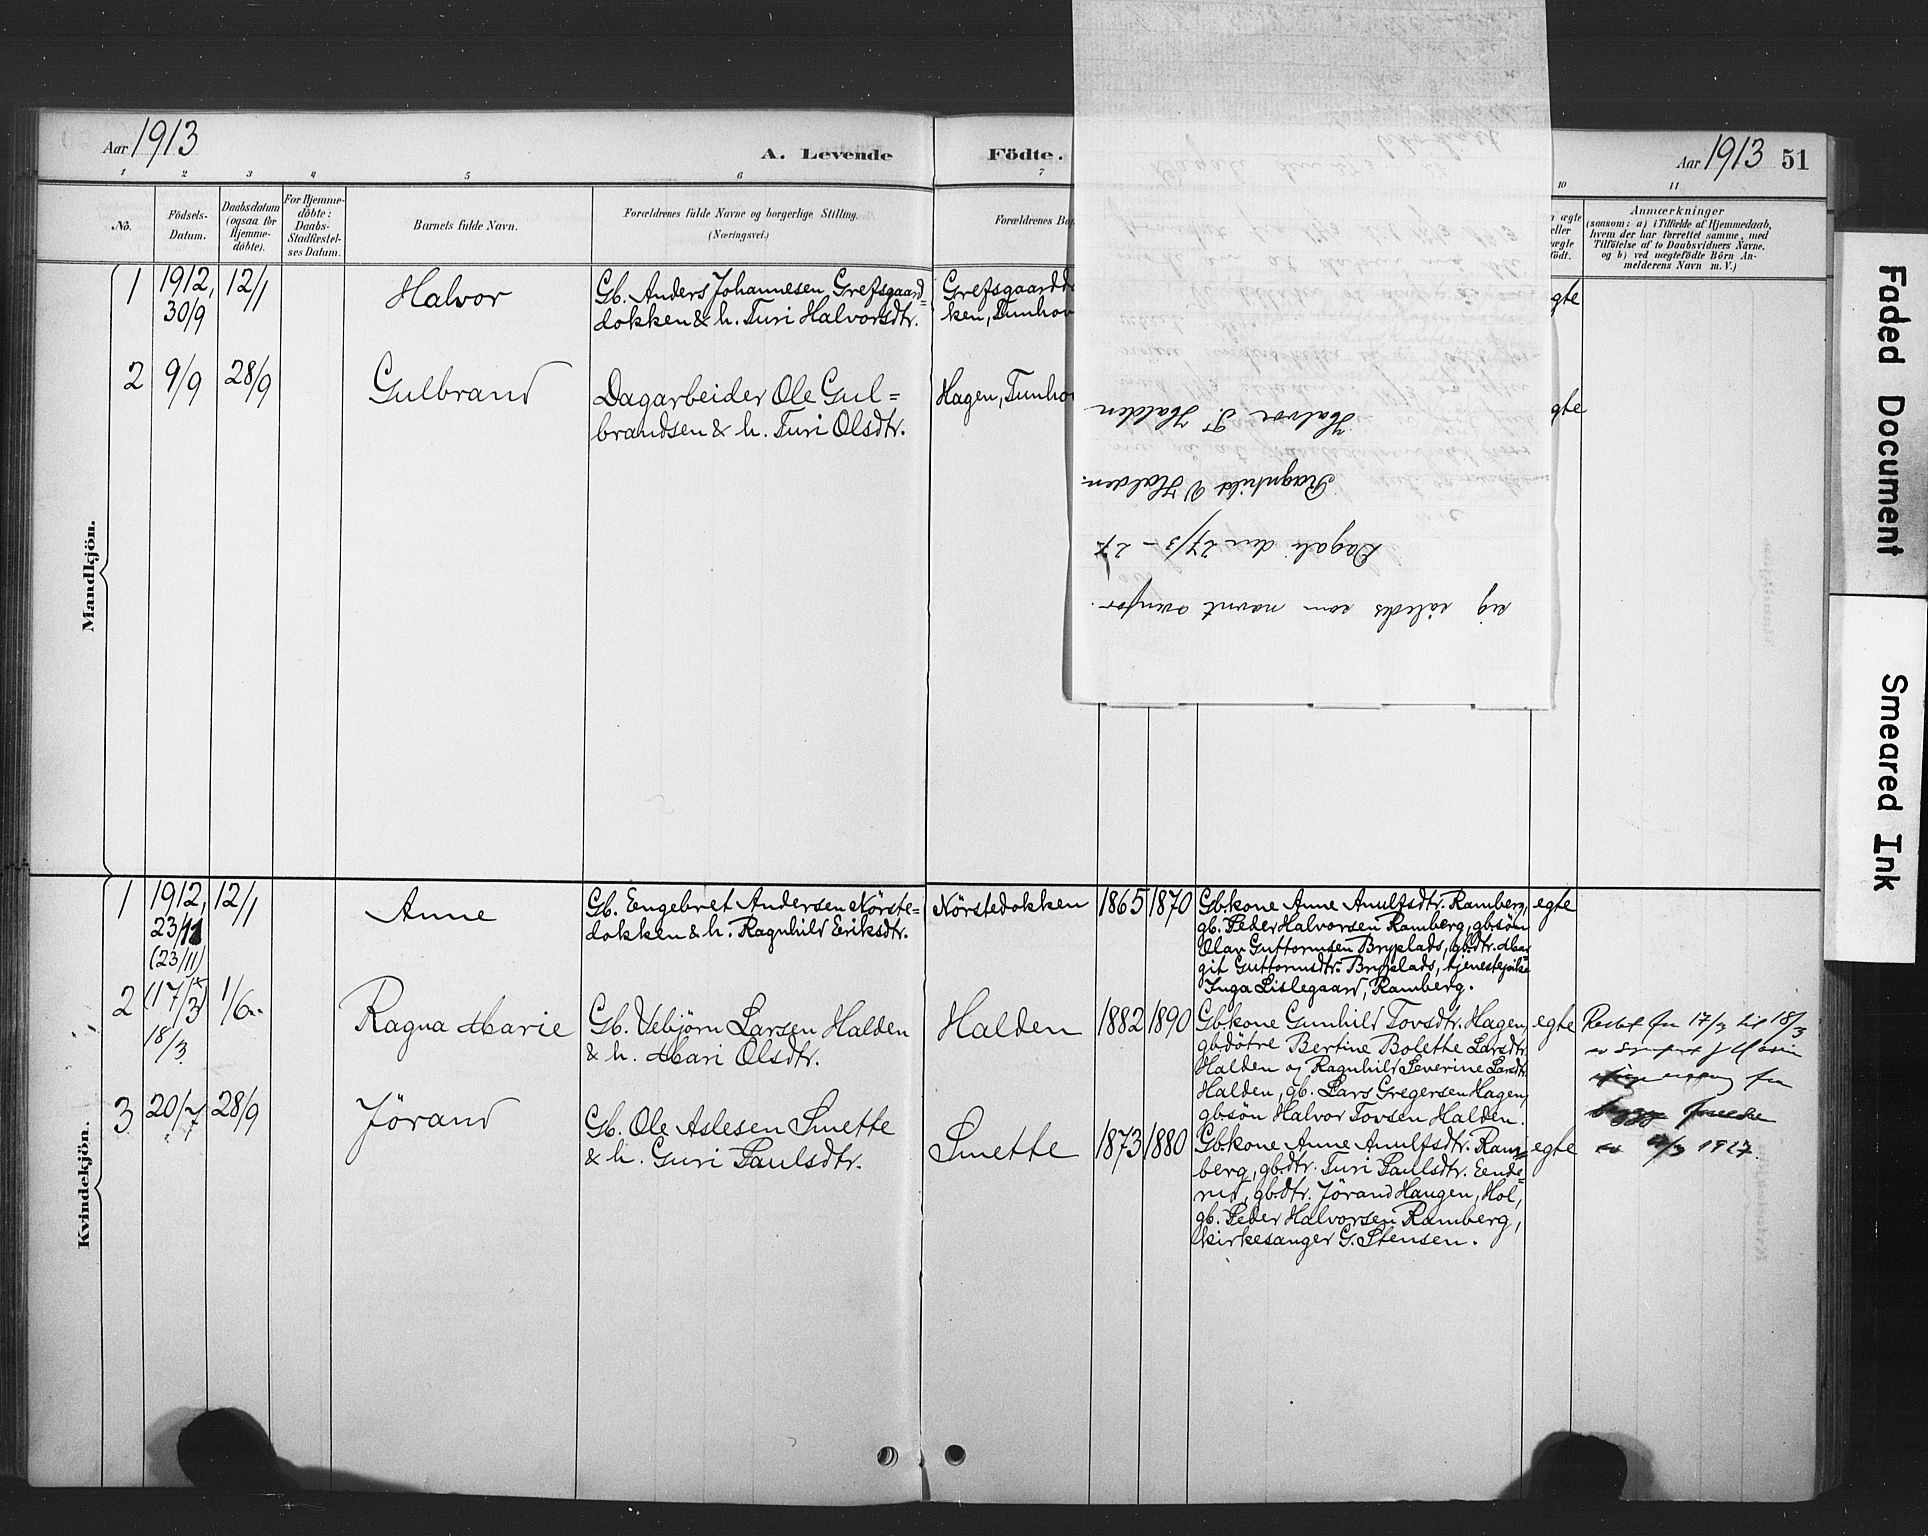 Aar 1913
A. Levende
Födte.
Aar 1913 51
1 2 3 4 5 6 7 10 11
No.
Födsels-
Datum.
Daabsdatum
(ogsaa for
Hjemme-
döbte).
For Hjemme-
döbte:
Daabs-
Stadfæstel-
ses Datum.
Barnets fulde Navn.
Forældrenes fulde Navne og borgerlige Stilling.
(Næringsvei.)
Forældrenes Bo
ægte
eller
uægte
födt.
Anmærkninger
(saasom: a) i Tilfælde af Hjemmedaab,
hvem der har forrettet samme, med
Tilföielse af to Daabsvidners Navne,
og b) ved uægtefödte Börn An-
melderens Navn m. V.)
Mandkjön.
1
1912,
30/9
12/1
Halvor
Gb. Anders Johannesen Grefsgaard=
dokken & h. Turi Halvorsdtr.
Grefsgaardd
ken, Tunhov
gte
2
9/9
28/9
Gulbrand
Dagarbeider Ole Gul=
brandsen & h. Turi Olsdtr.
Hagen, Tunhov
gte
sig således som nævnt ovenfor.
Dagali den 27/3 - 27
Ragnhild V Halden.
Halvor T. Halden
Kvindekjön.
1
1912,
23/11
(23/11)
12/1
Anne
Gb. Engebret Andersen Nörste=
dokken & h. Ragnhild Eriksdtr.
Nörstedokken
1865
1870
Gbkone Anne Arnulfsdtr. Ramberg,
gb. Peder Halvorsen Ramberg, gbsön
Olav Guttormsen Bryplads, gbdtr. Mar
git Guttormsdtr. Bryplads, tjenestepike
Inga Lislegaard, Ramberg.
egte
2
(17/3)
18/3
1/6
Ragna Marie
Gb. Vebjörn Larsen Halden
& h. Mari Olsdtr.
Halden
1882
1890
Gbkone Gunhild Tovsdtr. Hagen,
gbdötre Bertine Bolette Larsdtr.
Halden og Ragnhild Severine Larsdtr.
Halden, gb. Lars Gregersen Hagen,
gbsön Halvor Tovsen Halden.
egte
Rettet fra 17/3 til 18/3
1927.
3
20/7
28/9
Jörand
Gb. Ole Aslesen Smette
& h. Guri Paulsdtr.
Smette
1873
1880
Gbkone Anne Arnulfsdtr. Ram=
berg, gbdtr. Turi Paulsdtr. Ende=
rud, gbdtr. Jörand Haugen, Hol,
gb. Peder Halvorsen Ramberg,
kirkesanger G. Stensen.
egte
Faded Document
Smeared Ink